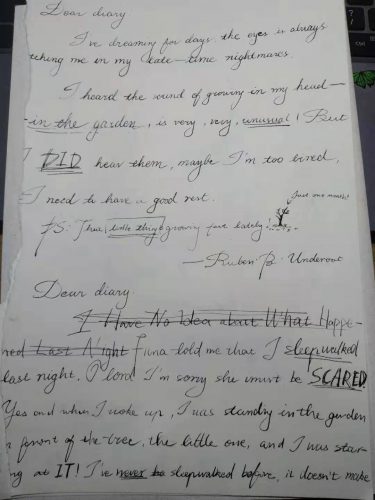 Dear diary
I've dreaming for days the eyes is always
tching me in my late-time nightmares.
I heard the sound of growing in my head—
-in the garden, is very, very, unusual! But
I DID hear them, maybe I'm too tired,
I need to have a good rest.
Just one month!
PS: That little thing growing fast lately!
—Ruben B. Underoot
Dear diary
I Have No Idea about What Happe-
ned Last Night Fiona told me that I sleepwalked
last night. O lord I'm sorry she must be SCARED
Yes and when I woke up, I was standing in the garden
n front of the tree, the little one, and I was star-
ng at IT! I've never be sleepwalked before, it doesn't make